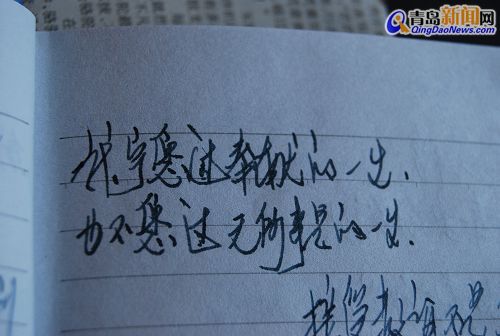 青岛新闻网
QingDaoNews.com
我宁愿过奉献的一生、
也不愿过无所事事的一生.